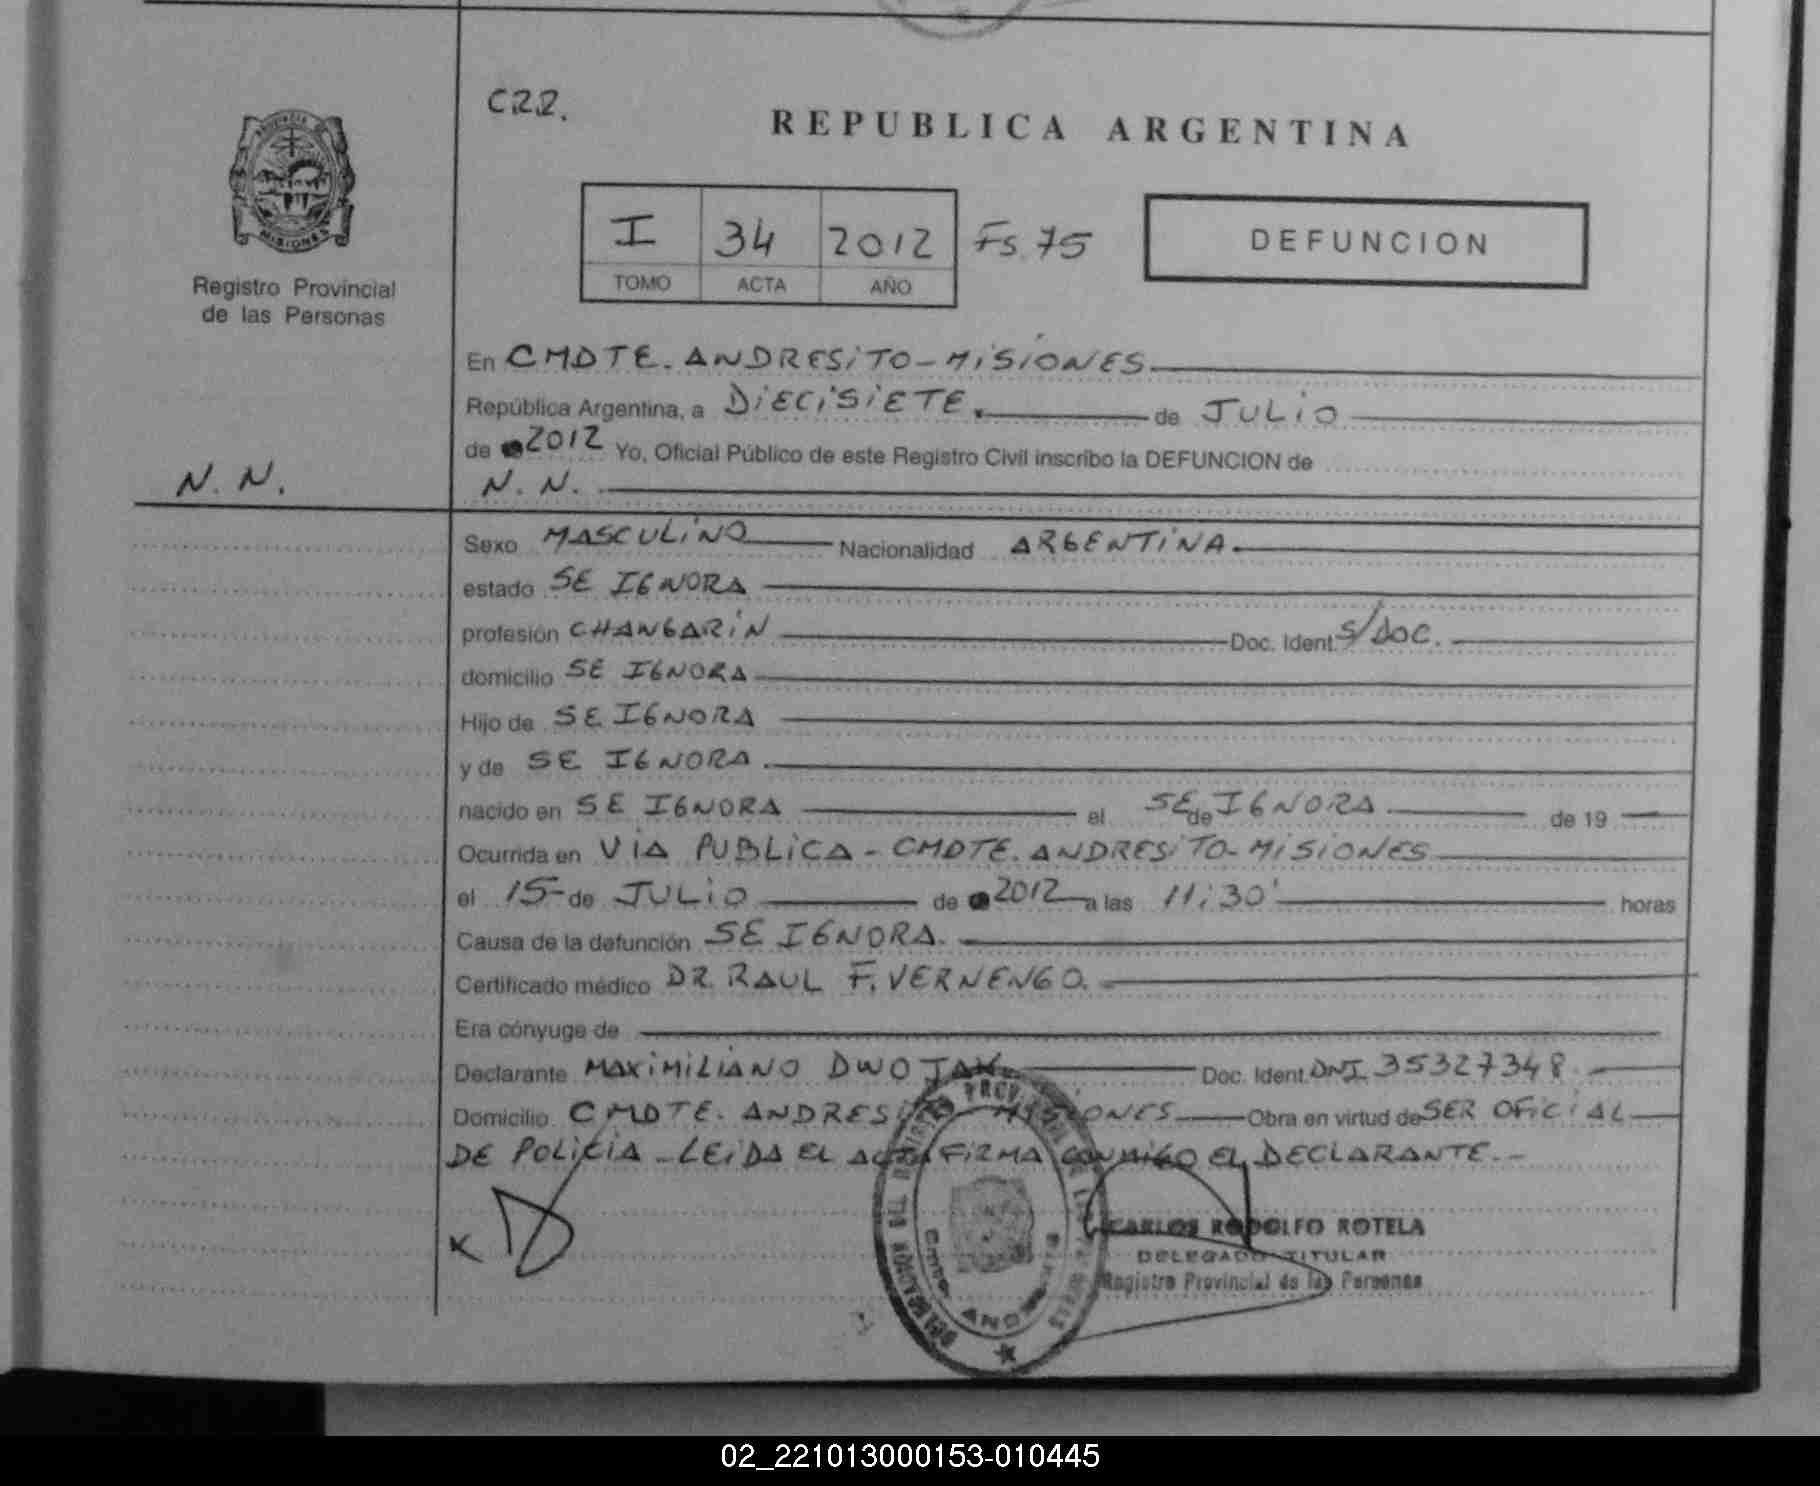 C22.
REPUBLICA ARGENTINA
I 34 2012 Fs. 75
TOMO ACTA AÑO
DEFUNCION
MISIONES
Registro Provincial
de las Personas
En CMDTE. ANDRESITO - MISIONES
República Argentina, a DIECISIETE. de JULIO
de 2012 Yo, Oficial Público de este Registro Civil inscribo la DEFUNCION de
N. N.
N. N.
Sexo MASCULINO Nacionalidad ARGENTINA
estado SE IGNORA
profesión CHANGARIN Doc. Ident. S/DOC.
domicilio SE IGNORA
Hijo de SE IGNORA
y de SE IGNORA.
nacido en SE IGNORA el SE de IGNORA de 19
Ocurrida en VIA PUBLICA - CMDTE. ANDRESITO - MISIONES
el 15 de JULIO de 2012 a las 11:30' horas
Causa de la defunción SE IGNORA.
Certificado médico DR. RAUL F. VERNENGO.
Era cónyuge de
Declarante MAXIMILIANO DWOJAK Doc. Ident. DNI 35327348.
Domicilio CMDTE. ANDRESITO MISIONES Obra en virtud de SER OFICIAL
DE POLICIA - LEIDA EL ACTA FIRMA CONMIGO EL DECLARANTE. -
CARLOS RODOLFO ROTELA
DELEGADO TITULAR
Registro Provincial de las Personas
02_221013000153-010445